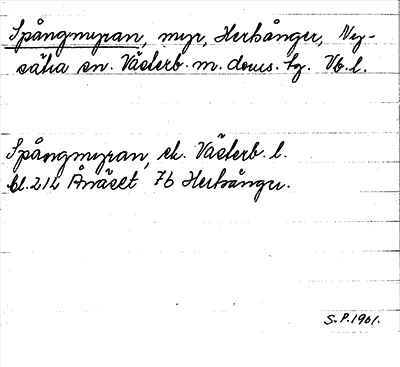 Spångmyran, myr, Herrånger, Ny-
sätra sn. Västerb. m. doms. tg. Vb. l.
Spångmyran, ek. Västerb. l.
bl. 212 Ånäset 7b Herrånger.
S.P. 1961.